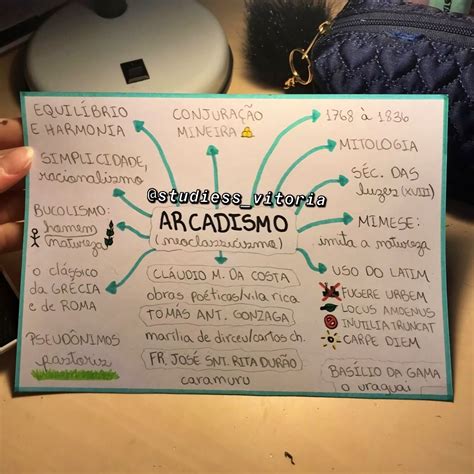 EQUILÍBRIO
E HARMONIA
SIMPLICIDADE,
racionalismo
BUCOLISMO:
homem
natureza
o clássico
da GRÉCIA
e de ROMA
PSEUDÔNIMOS
pastoris
CONJURAÇÃO
MINEIRA
@studiess_vitoria
ARCADISMO
(neoclassicismo)
CLÁUDIO M. DA COSTA
obras poéticas/vila rica
TOMAS ANT. GONZAGA
marília de dirceu/cartas ch.
FR. JOSÉ SNT. RITA DURÃO
caramuru
1768 à 1836
MITOLOGIA
SÉC. DAS
luzes (XVIII)
MIMESE:
imita a natureza
USO DO LATIM
FUGERE URBEM
LOCUS AMOENUS
INUTILIA TRUNCAT
CARPE DIEM
BASÍLIO DA GAMA
o uraguai